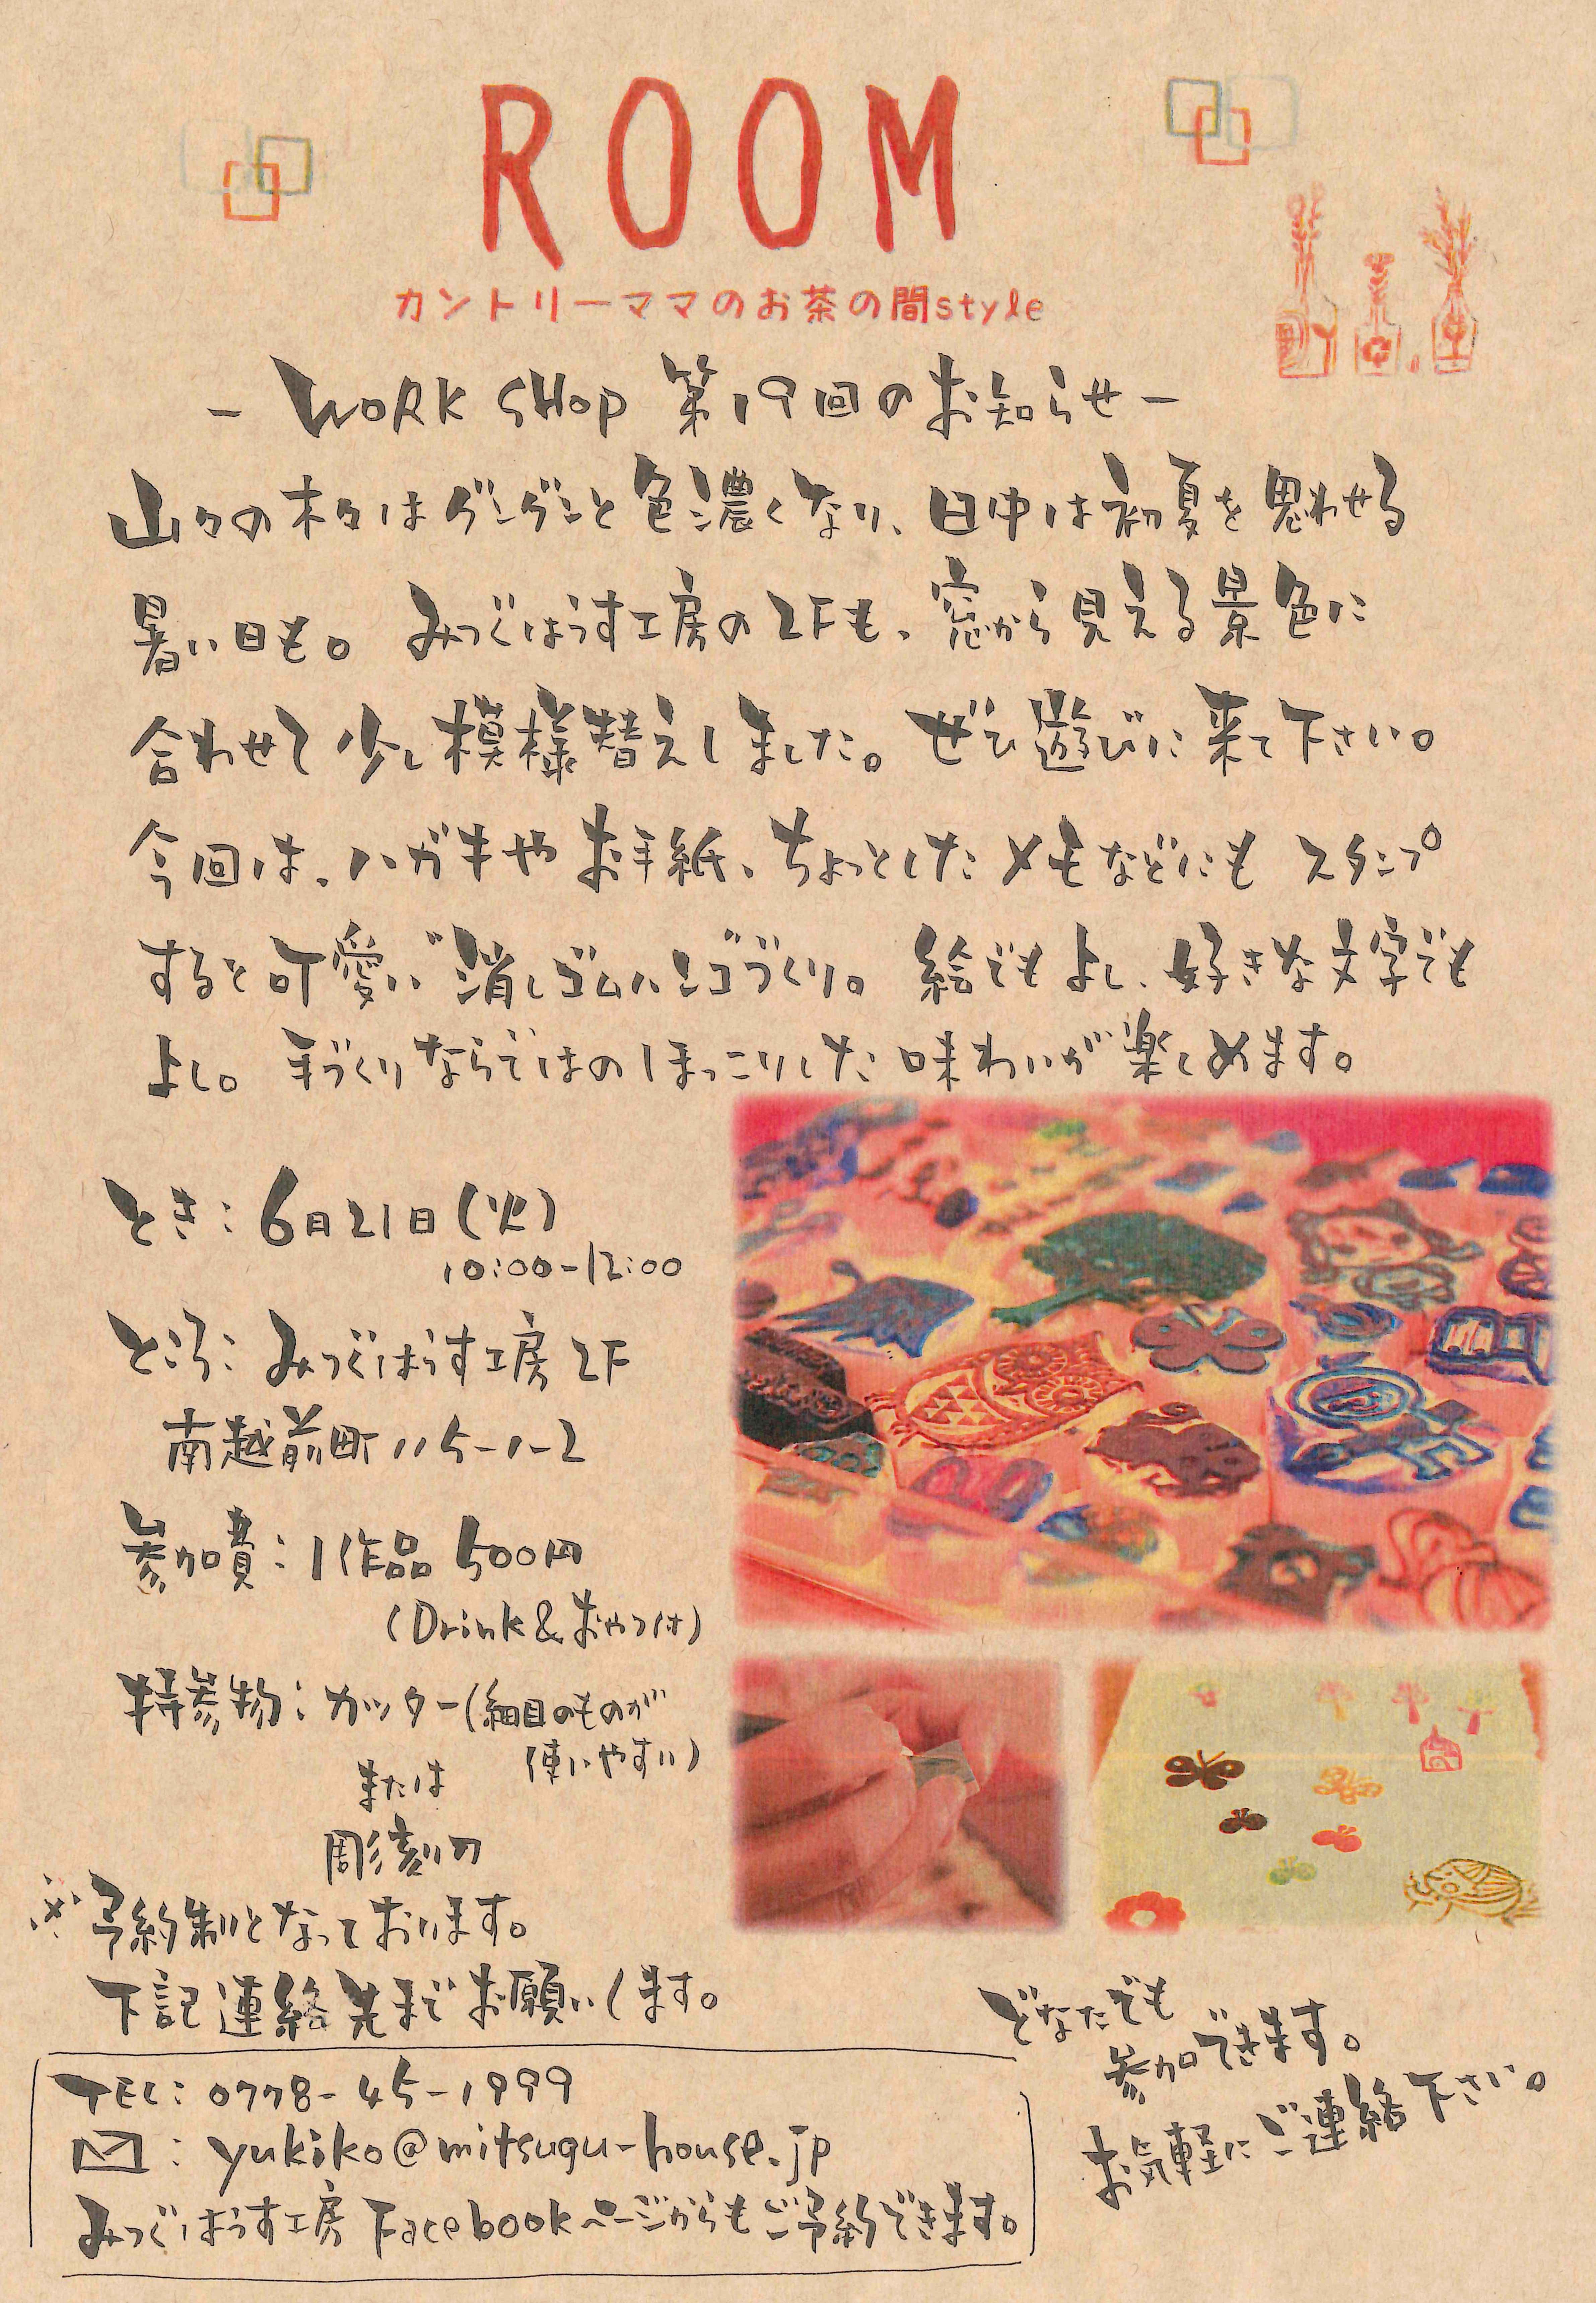 ROOM
カントリーママのお茶の間style
- WORK SHOP 第19回のお知らせ -
山々の木々はグングンと色濃くなり、日中は初夏を思わせる
暑い日も。みつぐはうす工房の2Fも、窓から見える景色に
合わせて少し模様替えしました。ぜひ遊びに来て下さい。
今回は、ハガキやお手紙、ちょっとしたメモなどにもスタンプ
すると可愛い"消しゴムハンコ"づくり。絵でもよし、好きな文字でも
よし。手づくりならではのほっこりした味わいが楽しめます。
とき:6月21日(火)
10:00-12:00
ところ:みつぐはうす工房2F
南越前町115-1-2
参加費:1作品500円
(Drink&おやつ付)
持参物:カッター(細目のものが
使いやすい)
または
彫刻刀
※予約制となっております。
下記連絡先までお願いします。
どなたでも
参加できます。
お気軽にご連絡下さい。
TEL:0778-45-1999
✉:yukiko@mitsugu-house.jp
みつぐはうす工房Facebookページからもご予約できます。